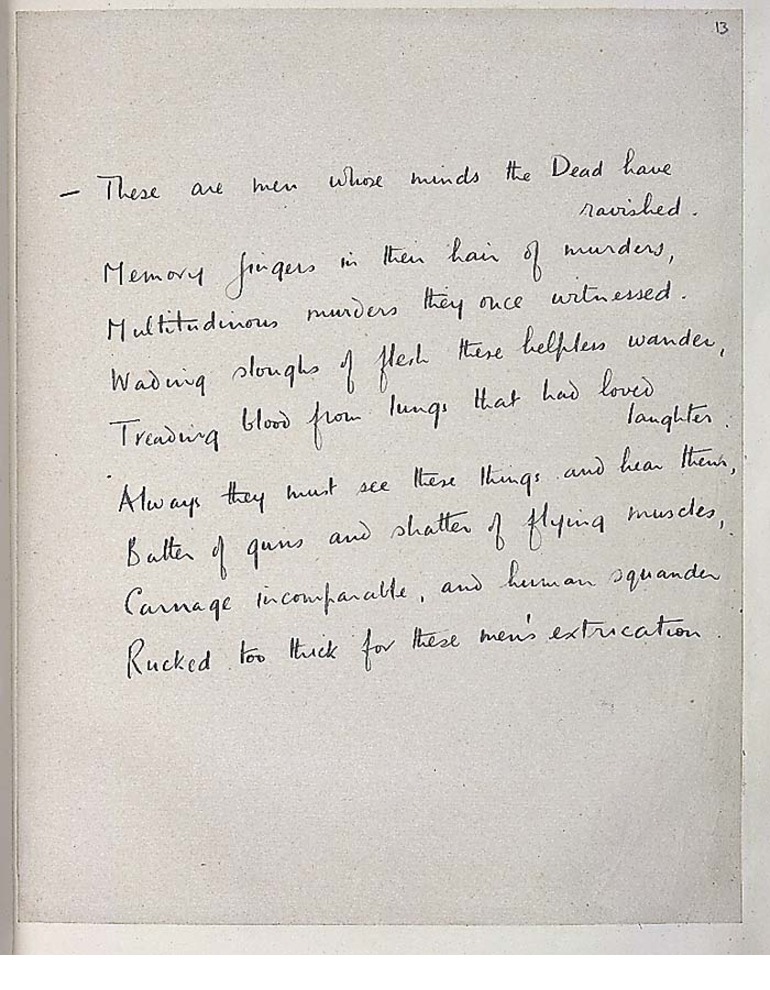 13
— These are men whose minds the Dead have
ravished.
Memory fingers in their hair of murders,
Multitudinous murders they once witnessed.
Wading sloughs of flesh these helpless wander,
Treading blood from lungs that had loved
laughter.
Always they must see these things and hear them,
Batter of guns and shatter of flying muscles,
Carnage incomparable, and human squander
Rucked too thick for these men's extrication.